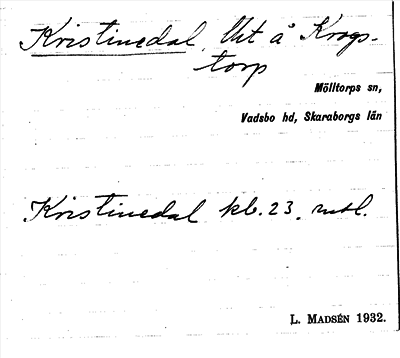 Kristinedal, lht å Krogs-
torp
Mölltorps sn,
Vadsbo hd, Skaraborgs län
Kristinedal kb. 23. mtl.
L. MADSÉN 1932.